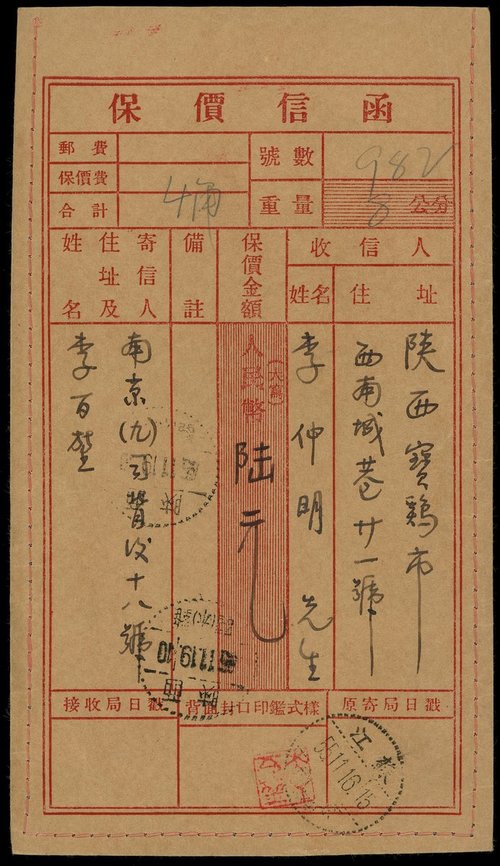 保價信函
郵費
保價費
合計
4角
號數
982
重量
8
公分
收信人
住址
姓名
保價金額
備註
寄信人
住址及
姓名
陝西寶鷄市
西南城巷廿一號
李仲明先生
人民幣
(大寫)
陸元
南京(九)
背後十八號
李百
陝
陝西
55.11.19.10
原寄局日戳
背面封口印鑑式樣
接收局日戳
江蘇
55.11.16.15